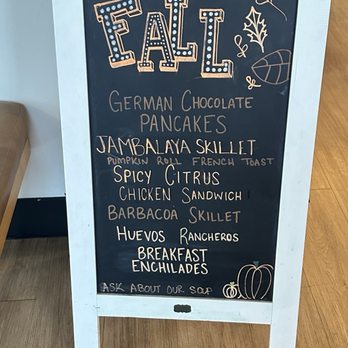 FALL
GERMAN CHOCOLATE
PANCAKES
JAMBALAYA SKILLET
PUMPKIN ROLL FRENCH TOAST
SPICY CITRUS
CHICKEN SANDWICH
BARBACOA SKILLET
HUEVOS RANCHEROS
BREAKFAST
ENCHILADES
ASK ABOUT OUR SOUP